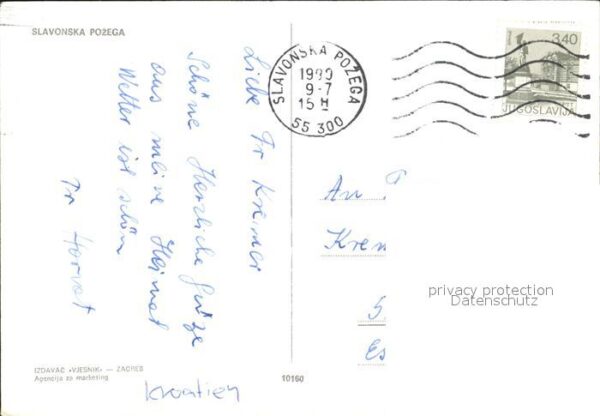 SLAVONSKA POŽEGA
Liebe Fr Kremer
Schöne Herzliche Grüze
aus meine Heimat
Wetter ist schön
Fr Horvat
SLAVONSKA POŽEGA
1980
9-7
15 H
55 300
3,40
JUGOSLAVIJA
An
Krem
5
Es
privacy protection
Datenschutz
IZDAVAČ »VJESNIK« — ZAGREB
Agencija za marketing
10160
Kroatien